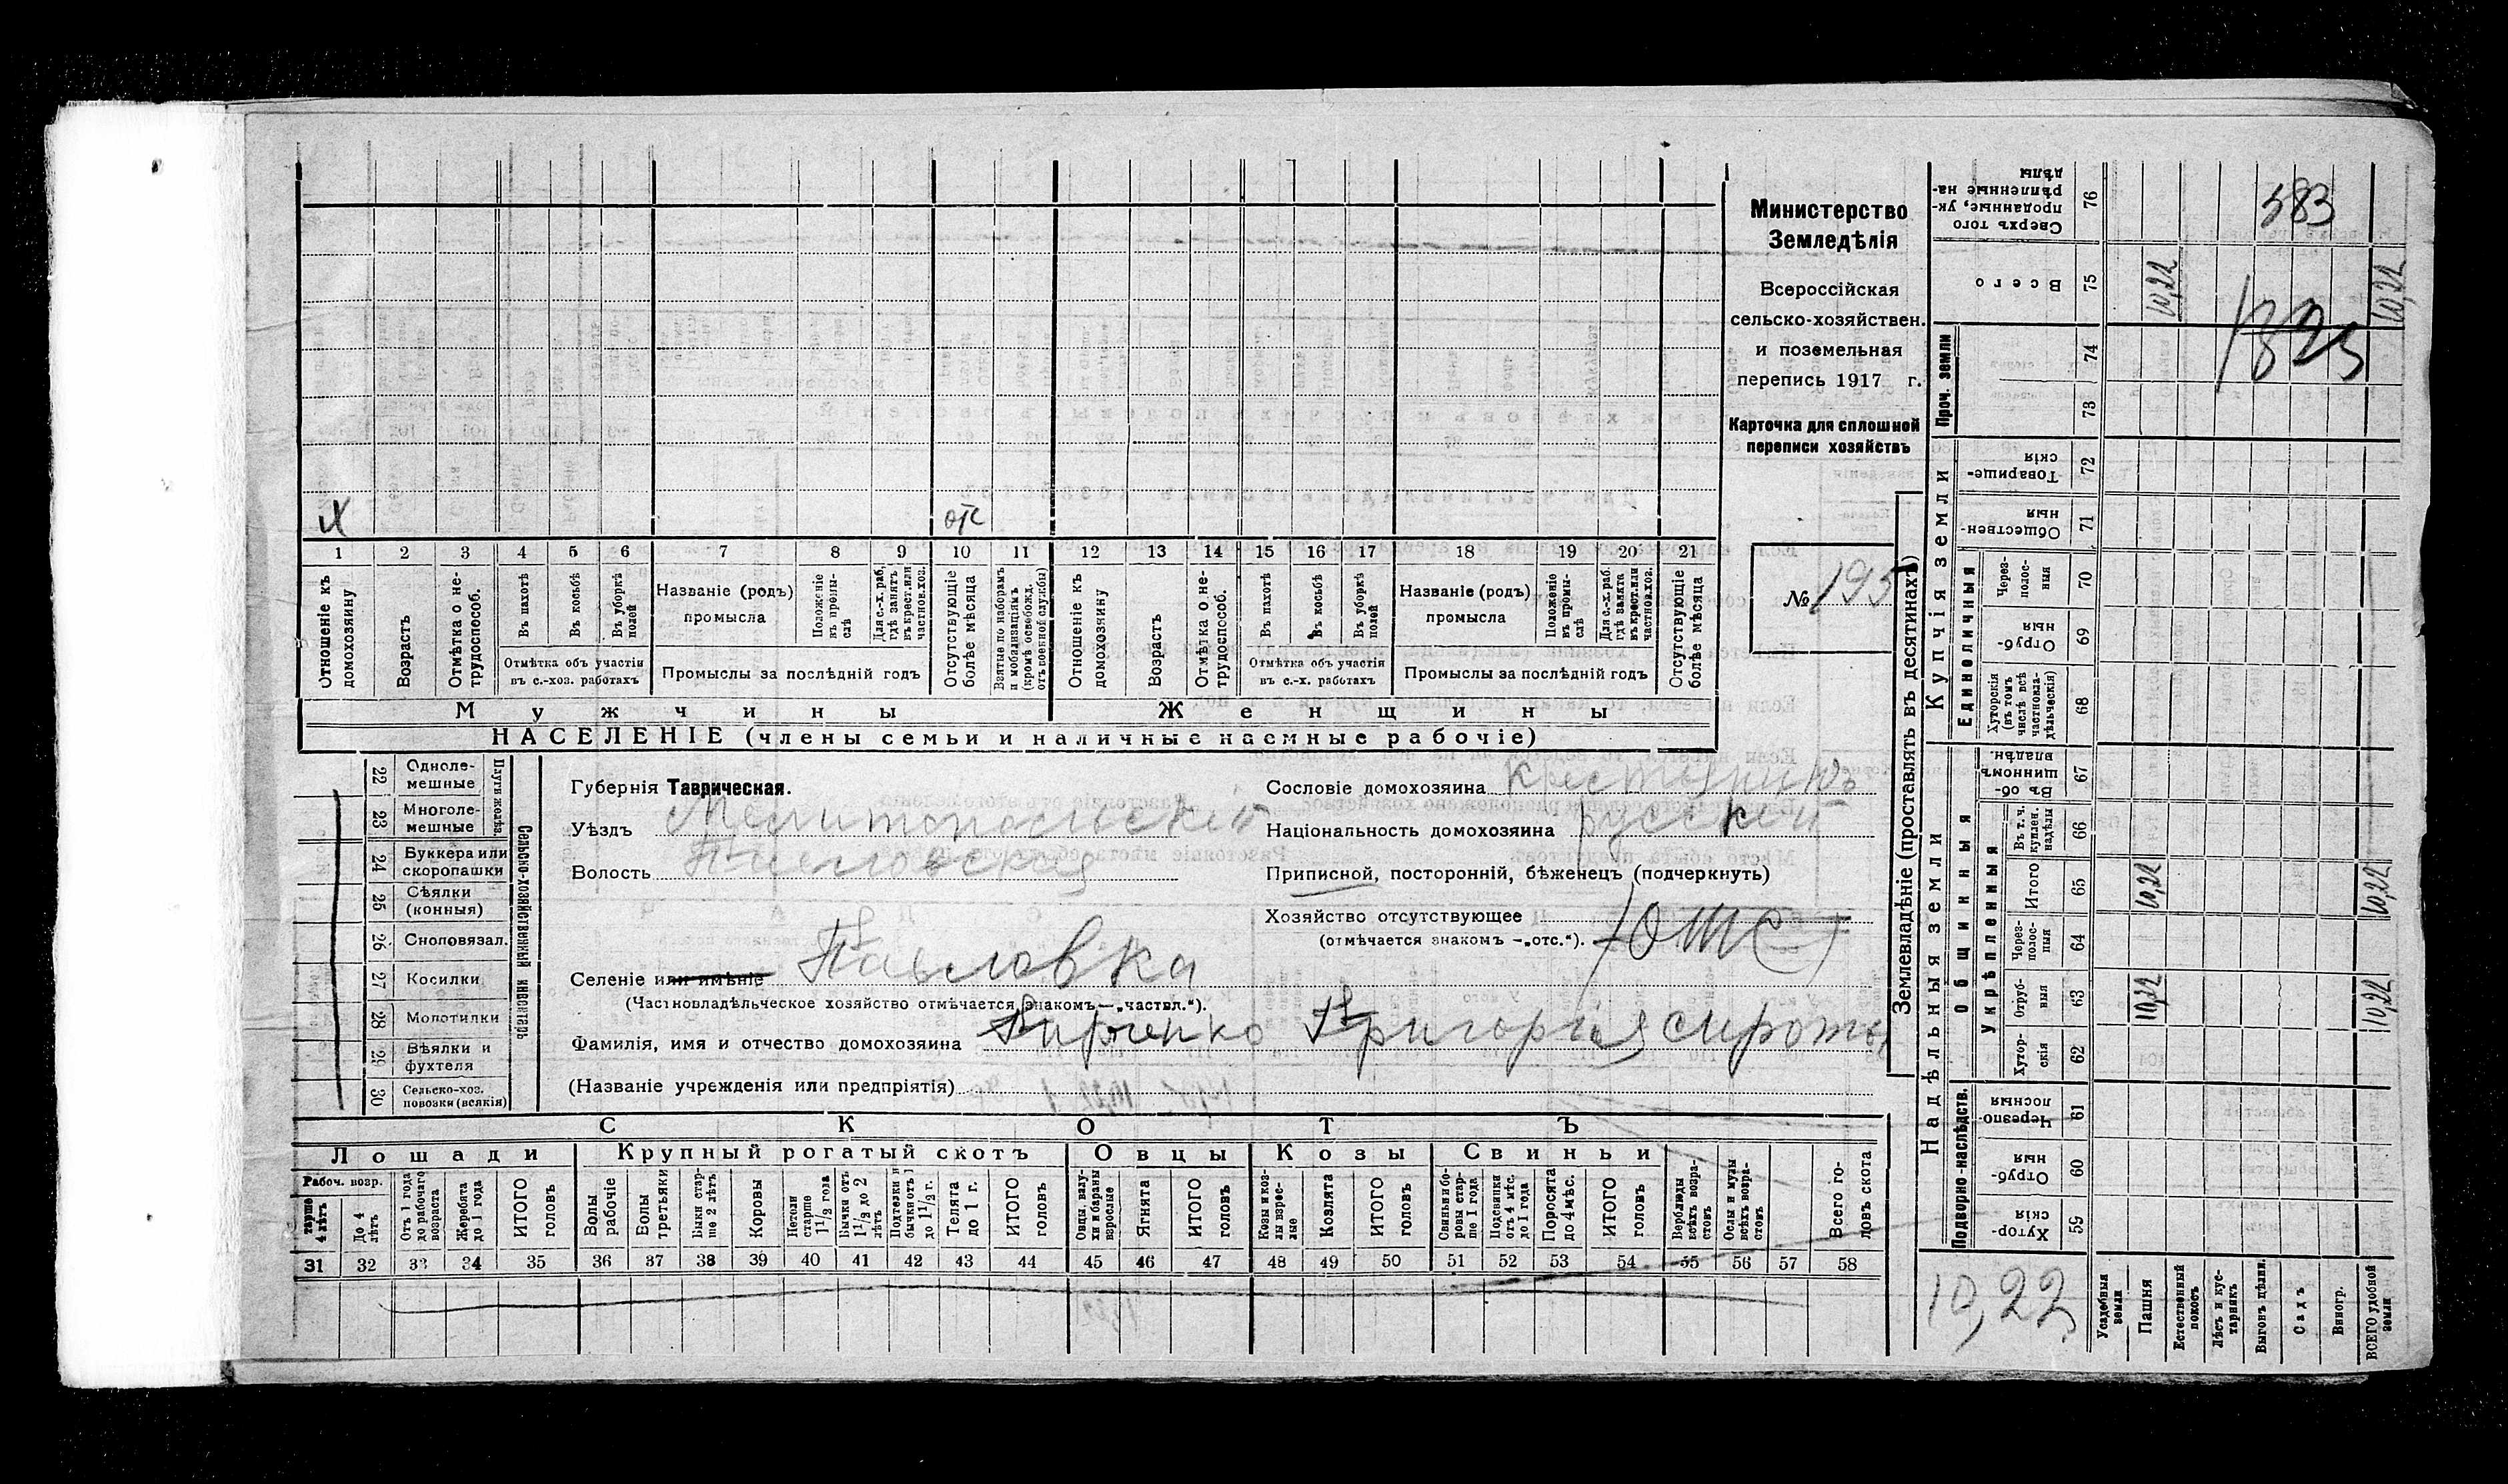 Министерство
Земледѣлія
Всероссійская
сельско-хозяйствен.
и поземельная
перепись 1917 г.
Карточка для сплошной
переписи хозяйствъ
№ 195
Х
отс
1 2 3 4 5 6 7 8 9 10 11 12 13 14 15 16 17 18 19 20 21
Отношеніе къ домохозяину
Возрастъ
Отмѣтка о не-трудоспособ.
Въ пахотѣ
Въ косьбѣ
Въ уборкѣ полей
Отмѣтка объ участіи въ с.-хоз. работахъ
Названіе (родъ) промысла
Положеніе въ промы-слѣ
Для с.-х. раб, гдѣ занятъ въ крест. или частнов. хоз.
Промыслы за послѣдній годъ
Отсутствующіе болѣе мѣсяца
Взятые по наборамъ и мобилизаціямъ (кромѣ освобожд. отъ военной службы)
Отношеніе къ домохозяину
Возрастъ
Отмѣтка о не-трудоспособ.
Въ пахотѣ
Въ косьбѣ
Въ уборкѣ полей
Отмѣтка объ участія въ с.-х. работахъ
Названіе (родъ) промысла
Положеніе въ промы-слѣ
Для с.-х. раб. гдѣ занята въ крест. или частнов. хоз.
Промыслы за послѣдній годъ
Отсутствующіе болѣе мѣсяца
Мужчины Женщины
НАСЕЛЕНІЕ (члены семьи и наличные наемные рабочіе)
Сельско-хозяйственный инвентарь
Плуги желѣз.
22 Одноле-мешные
23 Многоле-мешные
24 Буккера или скоропашки
25 Сѣялки (конныя)
26 Сноповязал.
27 Косилки
28 Молотилки
29 Вѣялки и фухтеля
30 Сельско-хоз. повозки (всякія)
Губернія Таврическая.
Уѣздъ Мелитопольскій
Волость
Сословіе домохозяина Крестьянинъ
Національность домохозяина русскій
Приписной, посторонній, бѣженец (подчеркнуть)
Хозяйство отсутствующее отс
(отмѣчается знакомъ –„отс.“).
Селеніе или имѣніе Павловка
(Частновладѣльческое хозяйство отмѣчается знакомъ—„частвл.“).
Фамилія, имя и отчество домохозяина Григорія сироты
(Названіе учрежденія или предпріятія)
СКОТЪ
Лошади Крупный рогатый скотъ Овцы Козы Свиньи
Рабоч. возр.
старше 4 лѣтъ
До 4 лѣтъ
Отъ 1 года до рабочаго возраста
Жеребята до 1 года
ИТОГО головъ
Волы рабочіе
Волы третьяки
Быки стар-ше 2 лѣтъ
Коровы
Нетели старше 1 1/2 года
Бычки отъ 1 1/2 до 2 лѣтъ
Подтелки и бычки отъ 1 до 1 1/2 г.
Телята до 1 г.
ИТОГО головъ
Овцы, валу-хи и бараны взрослые
Ягнята
ИТОГО головъ
Козы и коз-лы взрос-лые
Козлята
ИТОГО головъ
Свиньи и бо-ровы стар-ше 1 года
Подсвинки отъ 4 мѣс. до 1 года
Поросята до 4 мѣс.
ИТОГО головъ
Верблюды всѣхъ возра-стовъ
Ослы и мулы всѣхъ возра-стовъ
Всего го-ловъ скота
31 32 33 34 35 36 37 38 39 40 41 42 43 44 45 46 47 48 49 50 51 52 53 54 55 56 57 58
Землевладѣніе (проставлять въ десятинахъ)
Купчія земли
Надѣльныя земли
Проч. земли
Единоличныя
Общинныя
Укрѣпленныя
Подворно-наслѣдств.
76 Сверхъ того проданные, ук-рѣпленные на-дѣлы
75 Всего
74
73
72 Товарище-скія
71 Обществен-ныя
70 Через-полос-ныя
69 Отруб-ныя
68 Хуторскія (въ томъ числѣ всѣ частновла-дѣльческія)
67 Въ об-щинномъ владѣн.
66 Въ т. ч. куплен. надѣлы
65 Итого
64 Через-полос-ныя
63 Отруб-ныя
62 Хутор-скія
61 Черезпо-лосныя
60 Отруб-ныя
59 Хутор-скія
583
10,22
10,22
10,22
10,22
10,22
10,22
10,22
Усадебныя земли
Пашня
Естественный покосъ
Лѣсъ и кус-тарникъ
Выгонъ цѣлин.
Садъ
Виногр.
ВСЕГО удобной земли